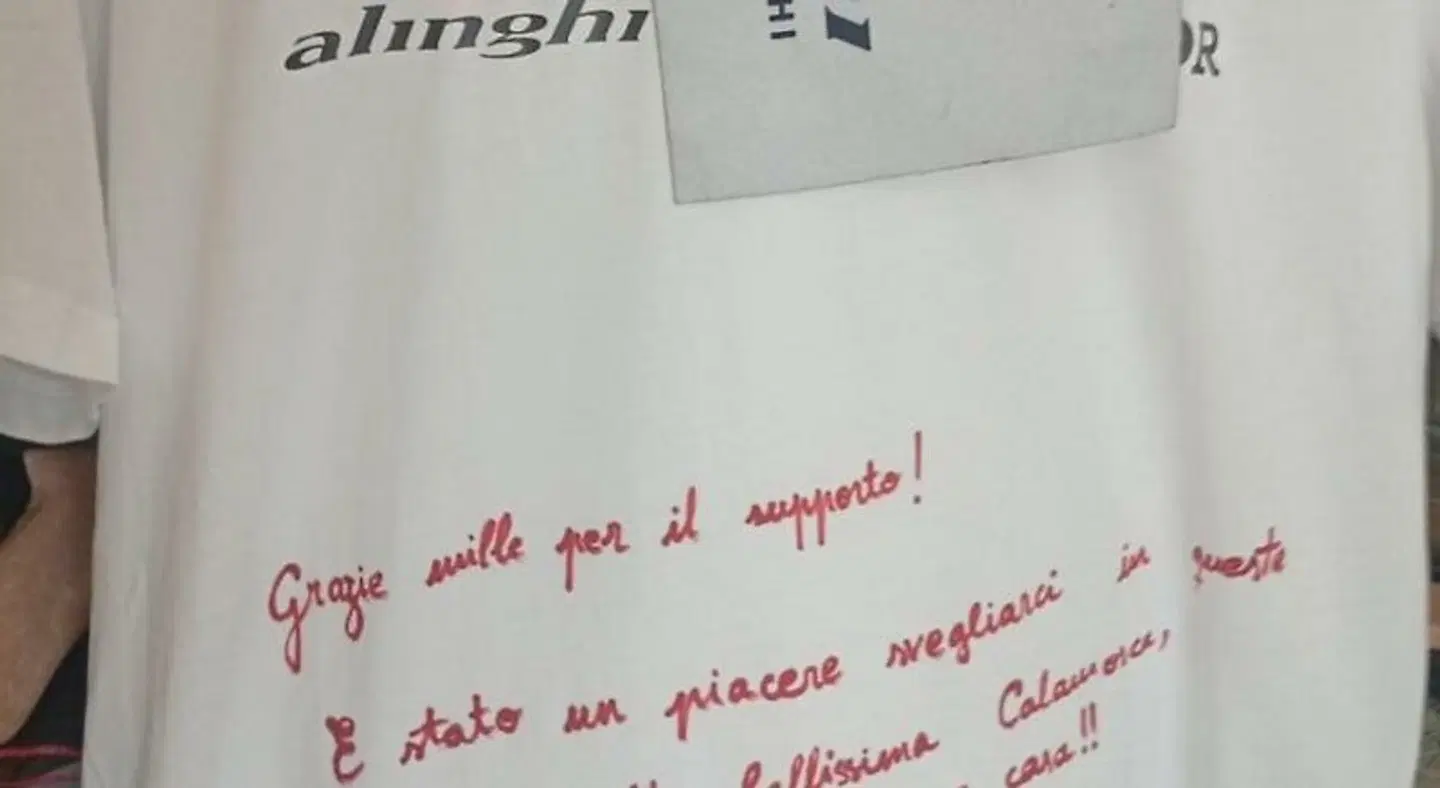 alinghi
Grazie mille per il supporto!
E stato un piacere svegliarci in queste
bellissima Calamosca,
casa!!